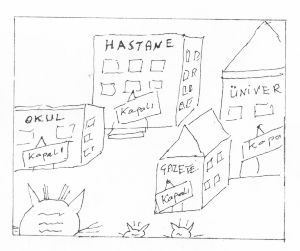 HASTANE
ÜNİVER
OKUL
Kapalı
Kapalı
Kapa
GAZETE
Kapalı